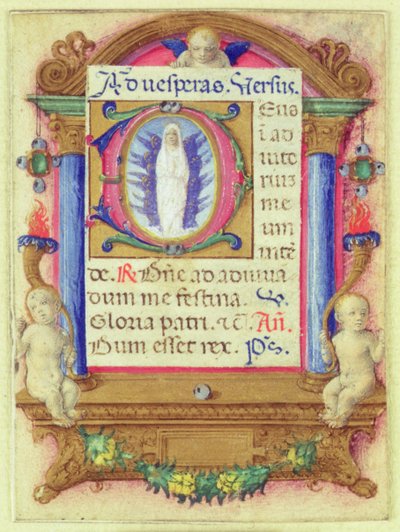 Ad uesperas. Versus.
DEus
ī ad
iuto
riuʒ
me
um
intē
de. ℟ Dñe ad adiuua
dum me festina. ℣.
Gloria patri. ⁊ c̄. Añ.
Dum esset rex. Ps.